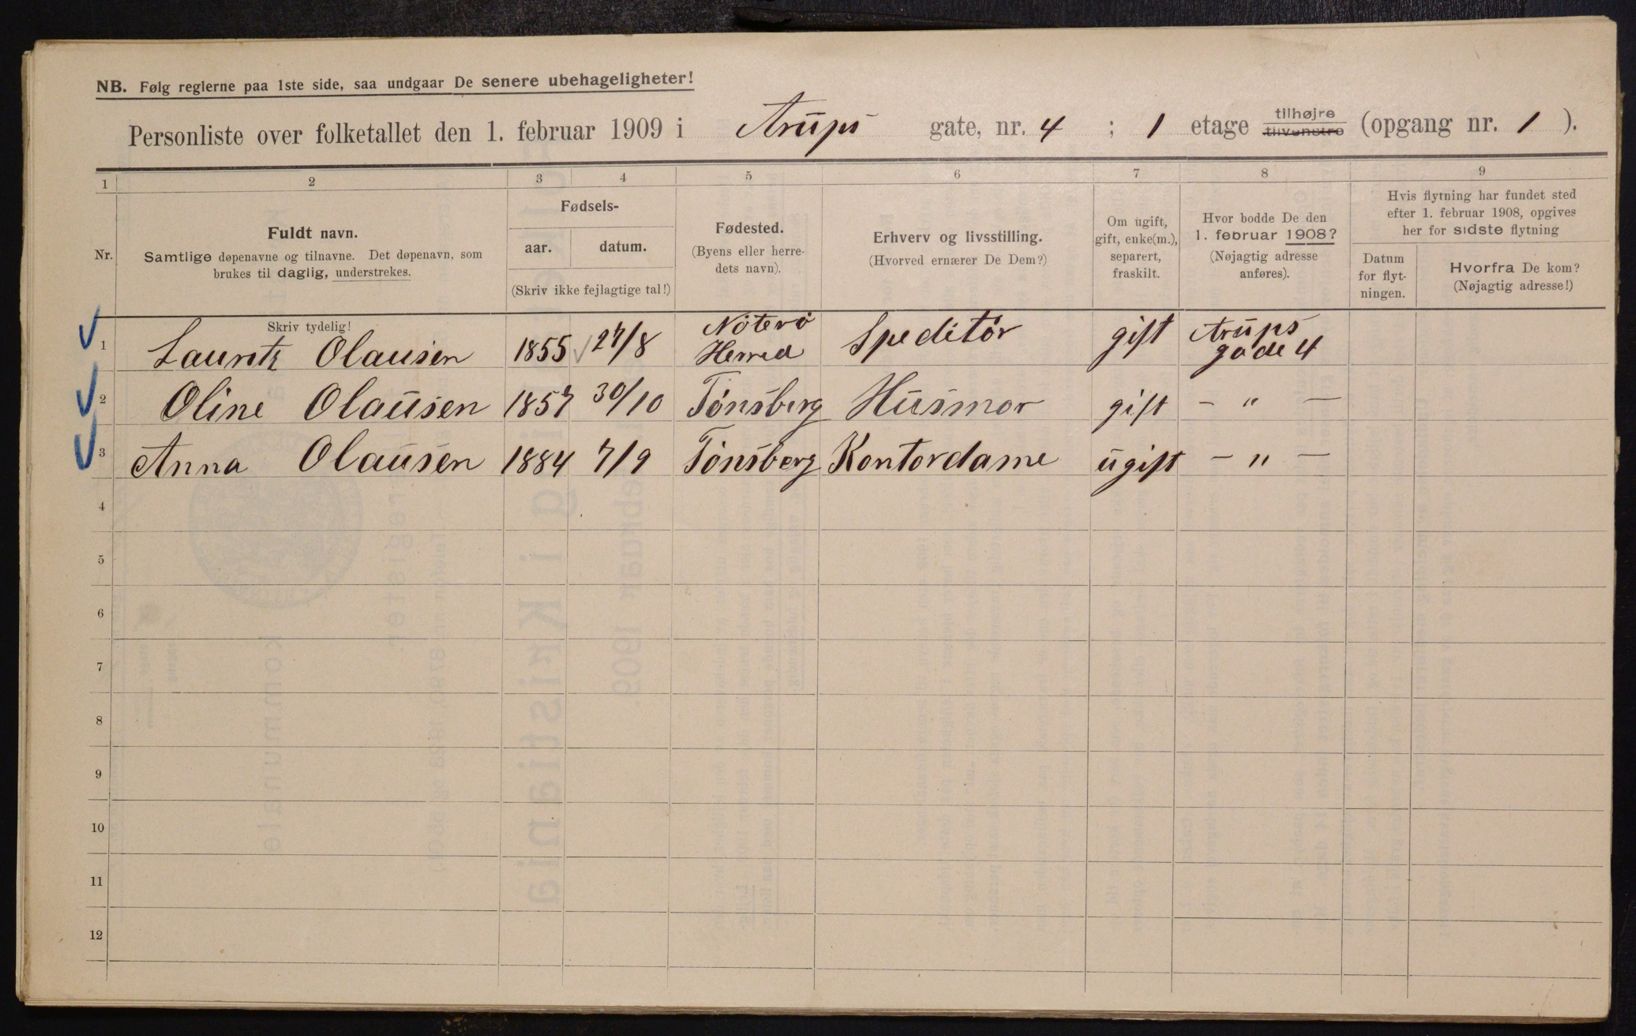 NB. Følg reglerne paa 1ste side, saa undgaar De senere ubehageligheter!
Personliste over folketallet den 1. februar 1909 i Arups gate, nr. 4 ; 1 etage tilhøjre tilvenstre (opgang nr. 1 ).
1 2 3 4 5 6 7 8 9
Nr.
Fuldt navn.
Samtlige døpenavne og tilnavne. Det døpenavn, som
brukes til daglig, understrekes.
Fødsels-
aar. datum.
(Skriv ikke fejlagtige tal!)
Fødested.
(Byens eller herre-
dets navn).
Erhverv og livsstilling.
(Hvorved ernærer De Dem?)
Om ugift,
gift, enke(m.),
separert,
fraskilt.
Hvor bodde De den
1. februar 1908?
(Nøjagtig adresse
anføres).
Hvis flytning har fundet sted
efter 1. februar 1908, opgives
her for sidste flytning
Datum
for flyt-
ningen.
Hvorfra De kom?
(Nøjagtig adresse!)
Skriv tydelig!
1 Lauritz Olausen 1855 27/8 Nøterø Herred Speditør gift Arups gade 4
2 Oline Olausen 1857 30/10 Tønsberg Husmor gift - " -
3 Anna Olausen 1884 7/9 Tønsberg Kontordame ugift - " -
4
5
6
7
8
9
10
11
12